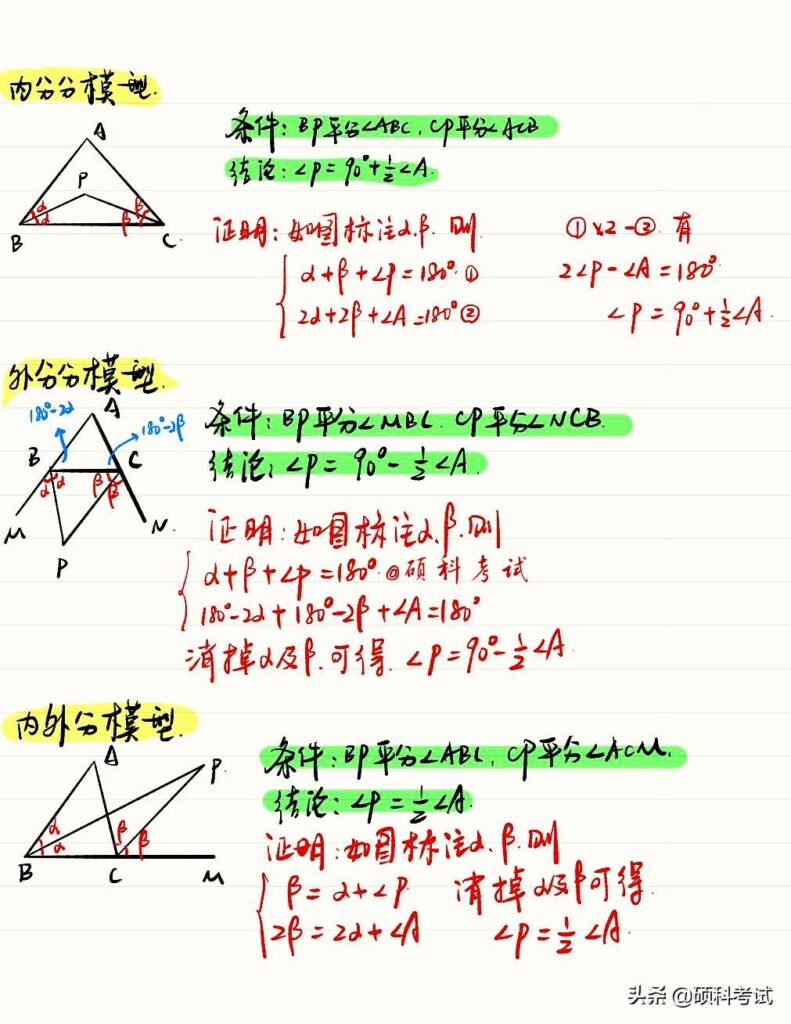 内分分模型.
A
P
α β
α β
B C
条件: BP平分∠ABC, CP平分∠ACB
结论: ∠P=90°+½∠A.
证明: 如图标注α.β. 则
α+β+∠P=180° ①
2α+2β+∠A=180° ②
①×2-②. 有
2∠P-∠A=180°
∠P=90°+½∠A.
外分分模型.
180°-2α A 180°-2β
B C
α α β β
M N.
P
条件: BP平分∠MBC. CP平分∠NCB.
结论: ∠P=90°-½∠A.
证明: 如图标注α.β.则
α+β+∠P=180°. @硕科考试
180°-2α+180°-2β+∠A=180°
消掉α及β.可得. ∠P=90°-½∠A.
内外分模型.
A P.
α β
α β
B C M
条件: BP平分∠ABC, CP平分∠ACM.
结论: ∠P=½∠A.
证明: 如图标注α.β.则
β=α+∠P. 消掉α及β可得.
2β=2α+∠A ∠P=½∠A.
头条 @硕科考试